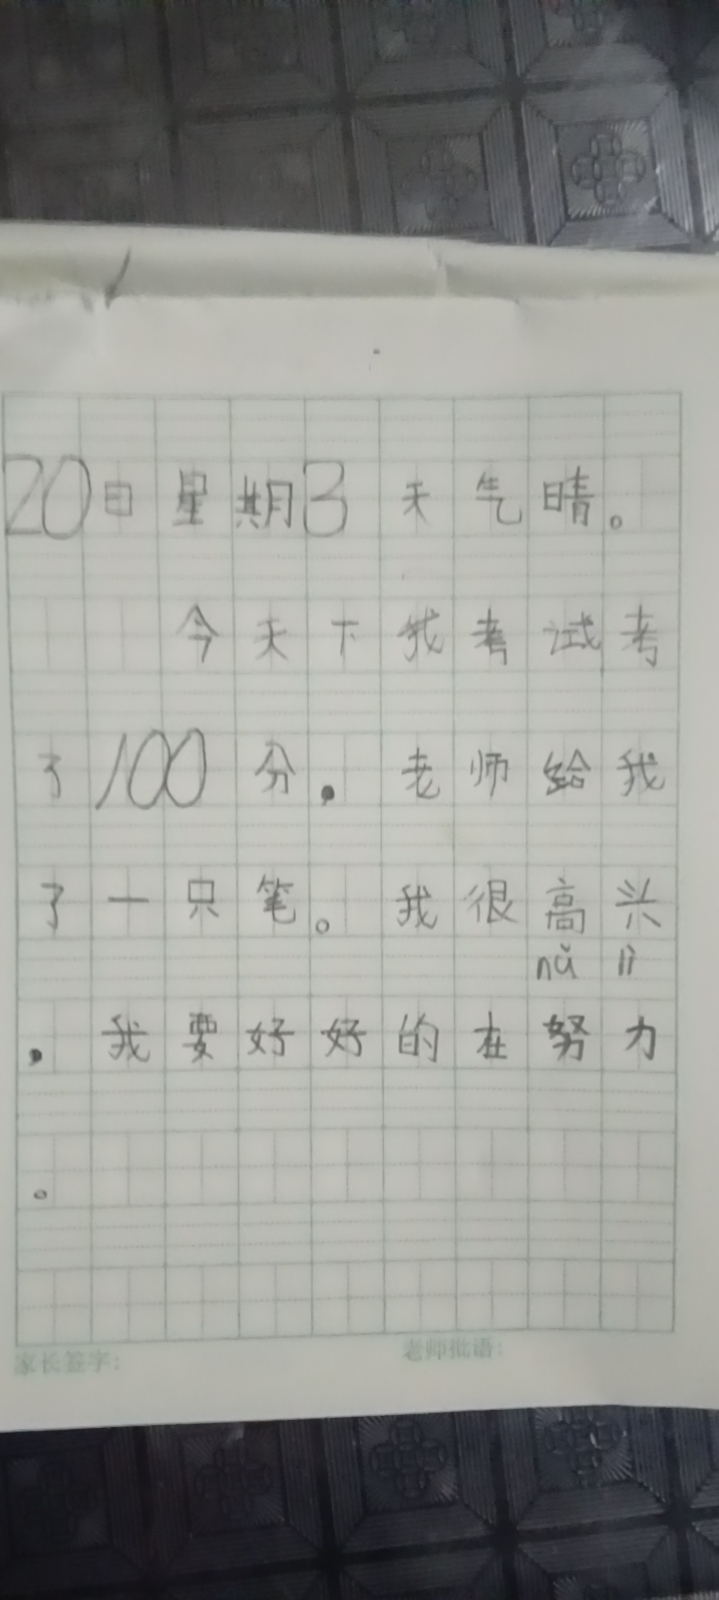 20日星期3天气晴。
今天下我考试考
了100分，老师给我
了一只笔。我很高兴
nǔ lì
，我要好好的在努力
。
家长签字：
老师批语：